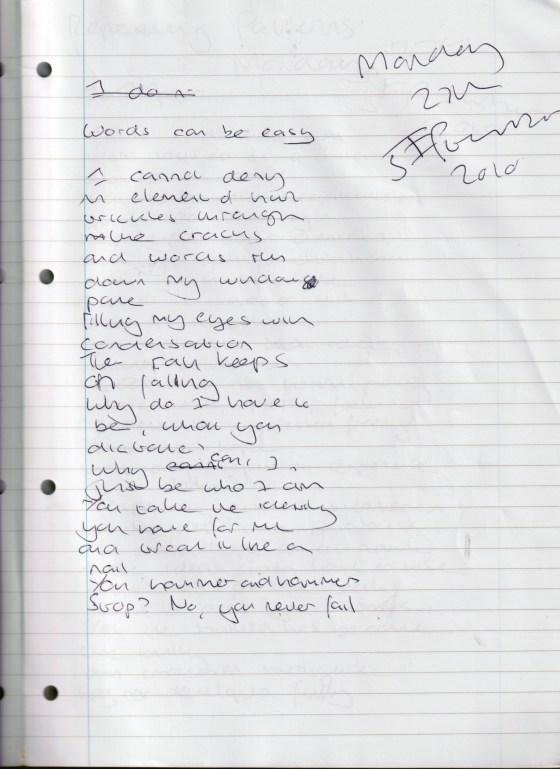 Monday
27th
2010
I don
Words can be easy
I cannot deny
element of
trickles through
the cracks
and words run
down my window
pane
filling my eyes with
condensation
The rain keeps
on falling
Why do I have to
be, what you
dictate?
Why can, I,
just be who I am
You take the identity
you have for me
and it like a
nail
You hammer and hammer
Stop? No, you never fail